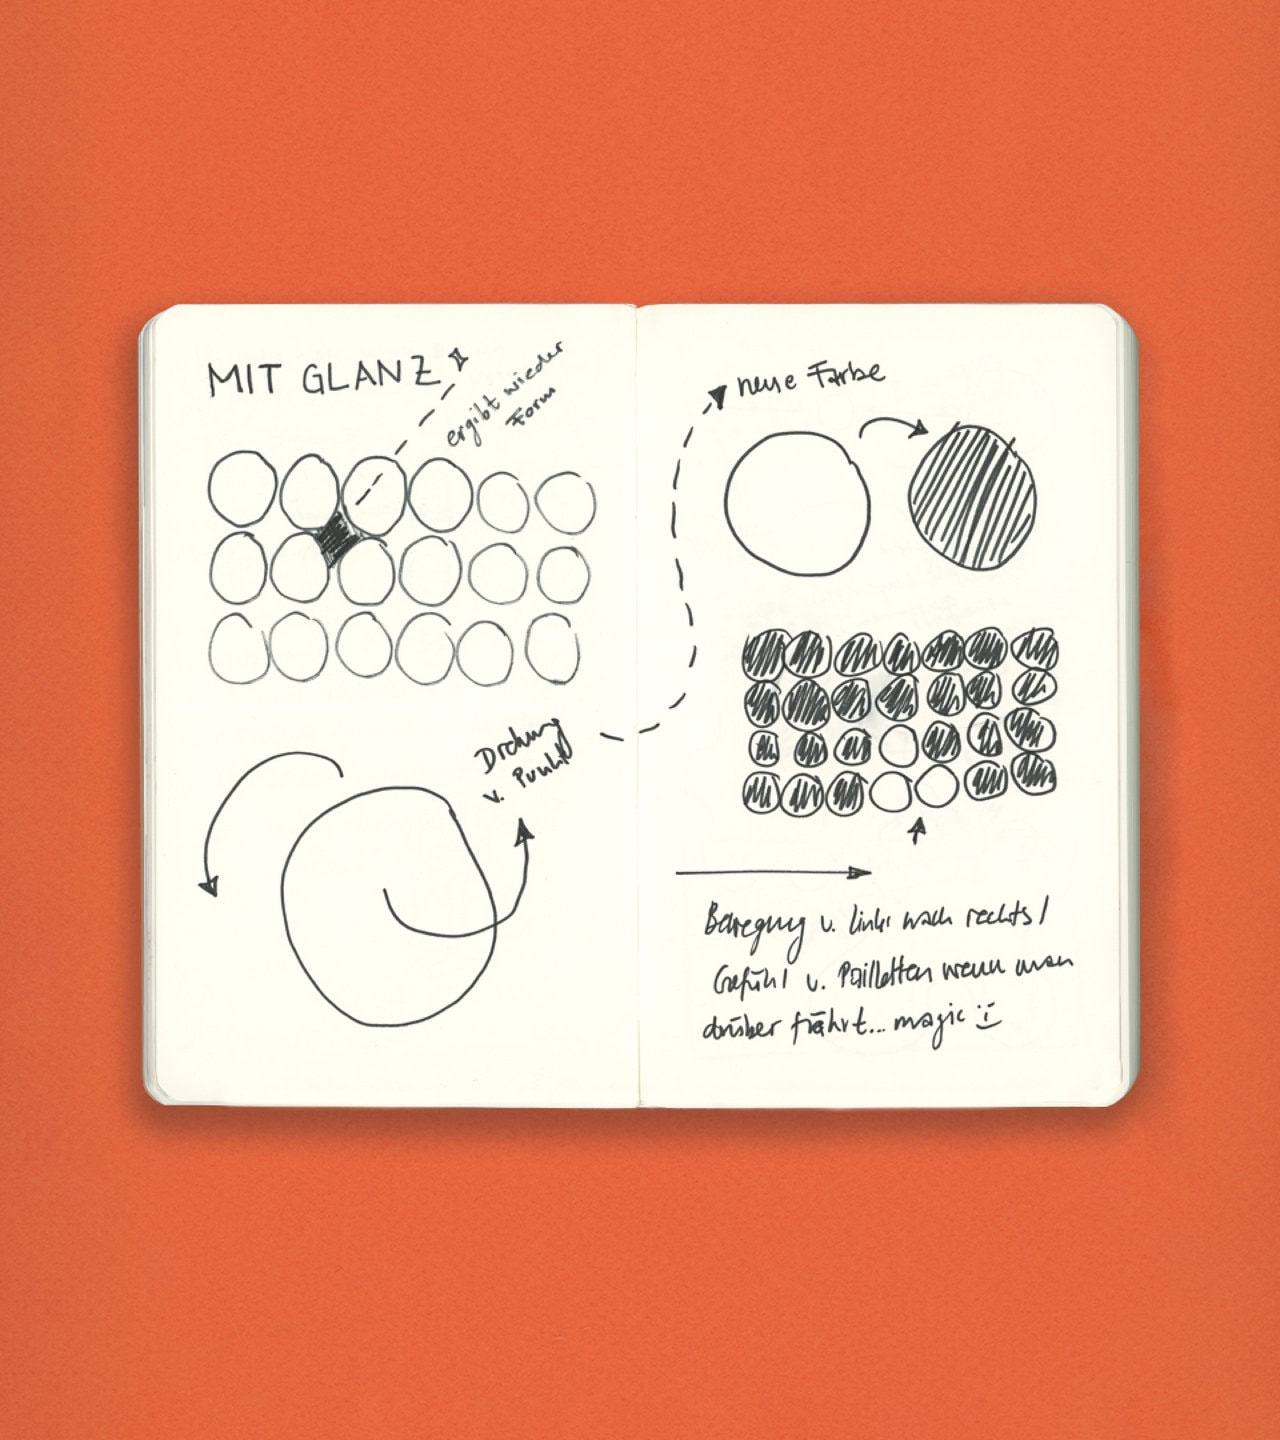 MIT GLANZ
ergibt wieder
Form
Drehung
v. Punkt
neue Farbe
Bewegung v. links nach rechts /
Gefühl v. Pailletten wenn man
drüber fährt... magic :)